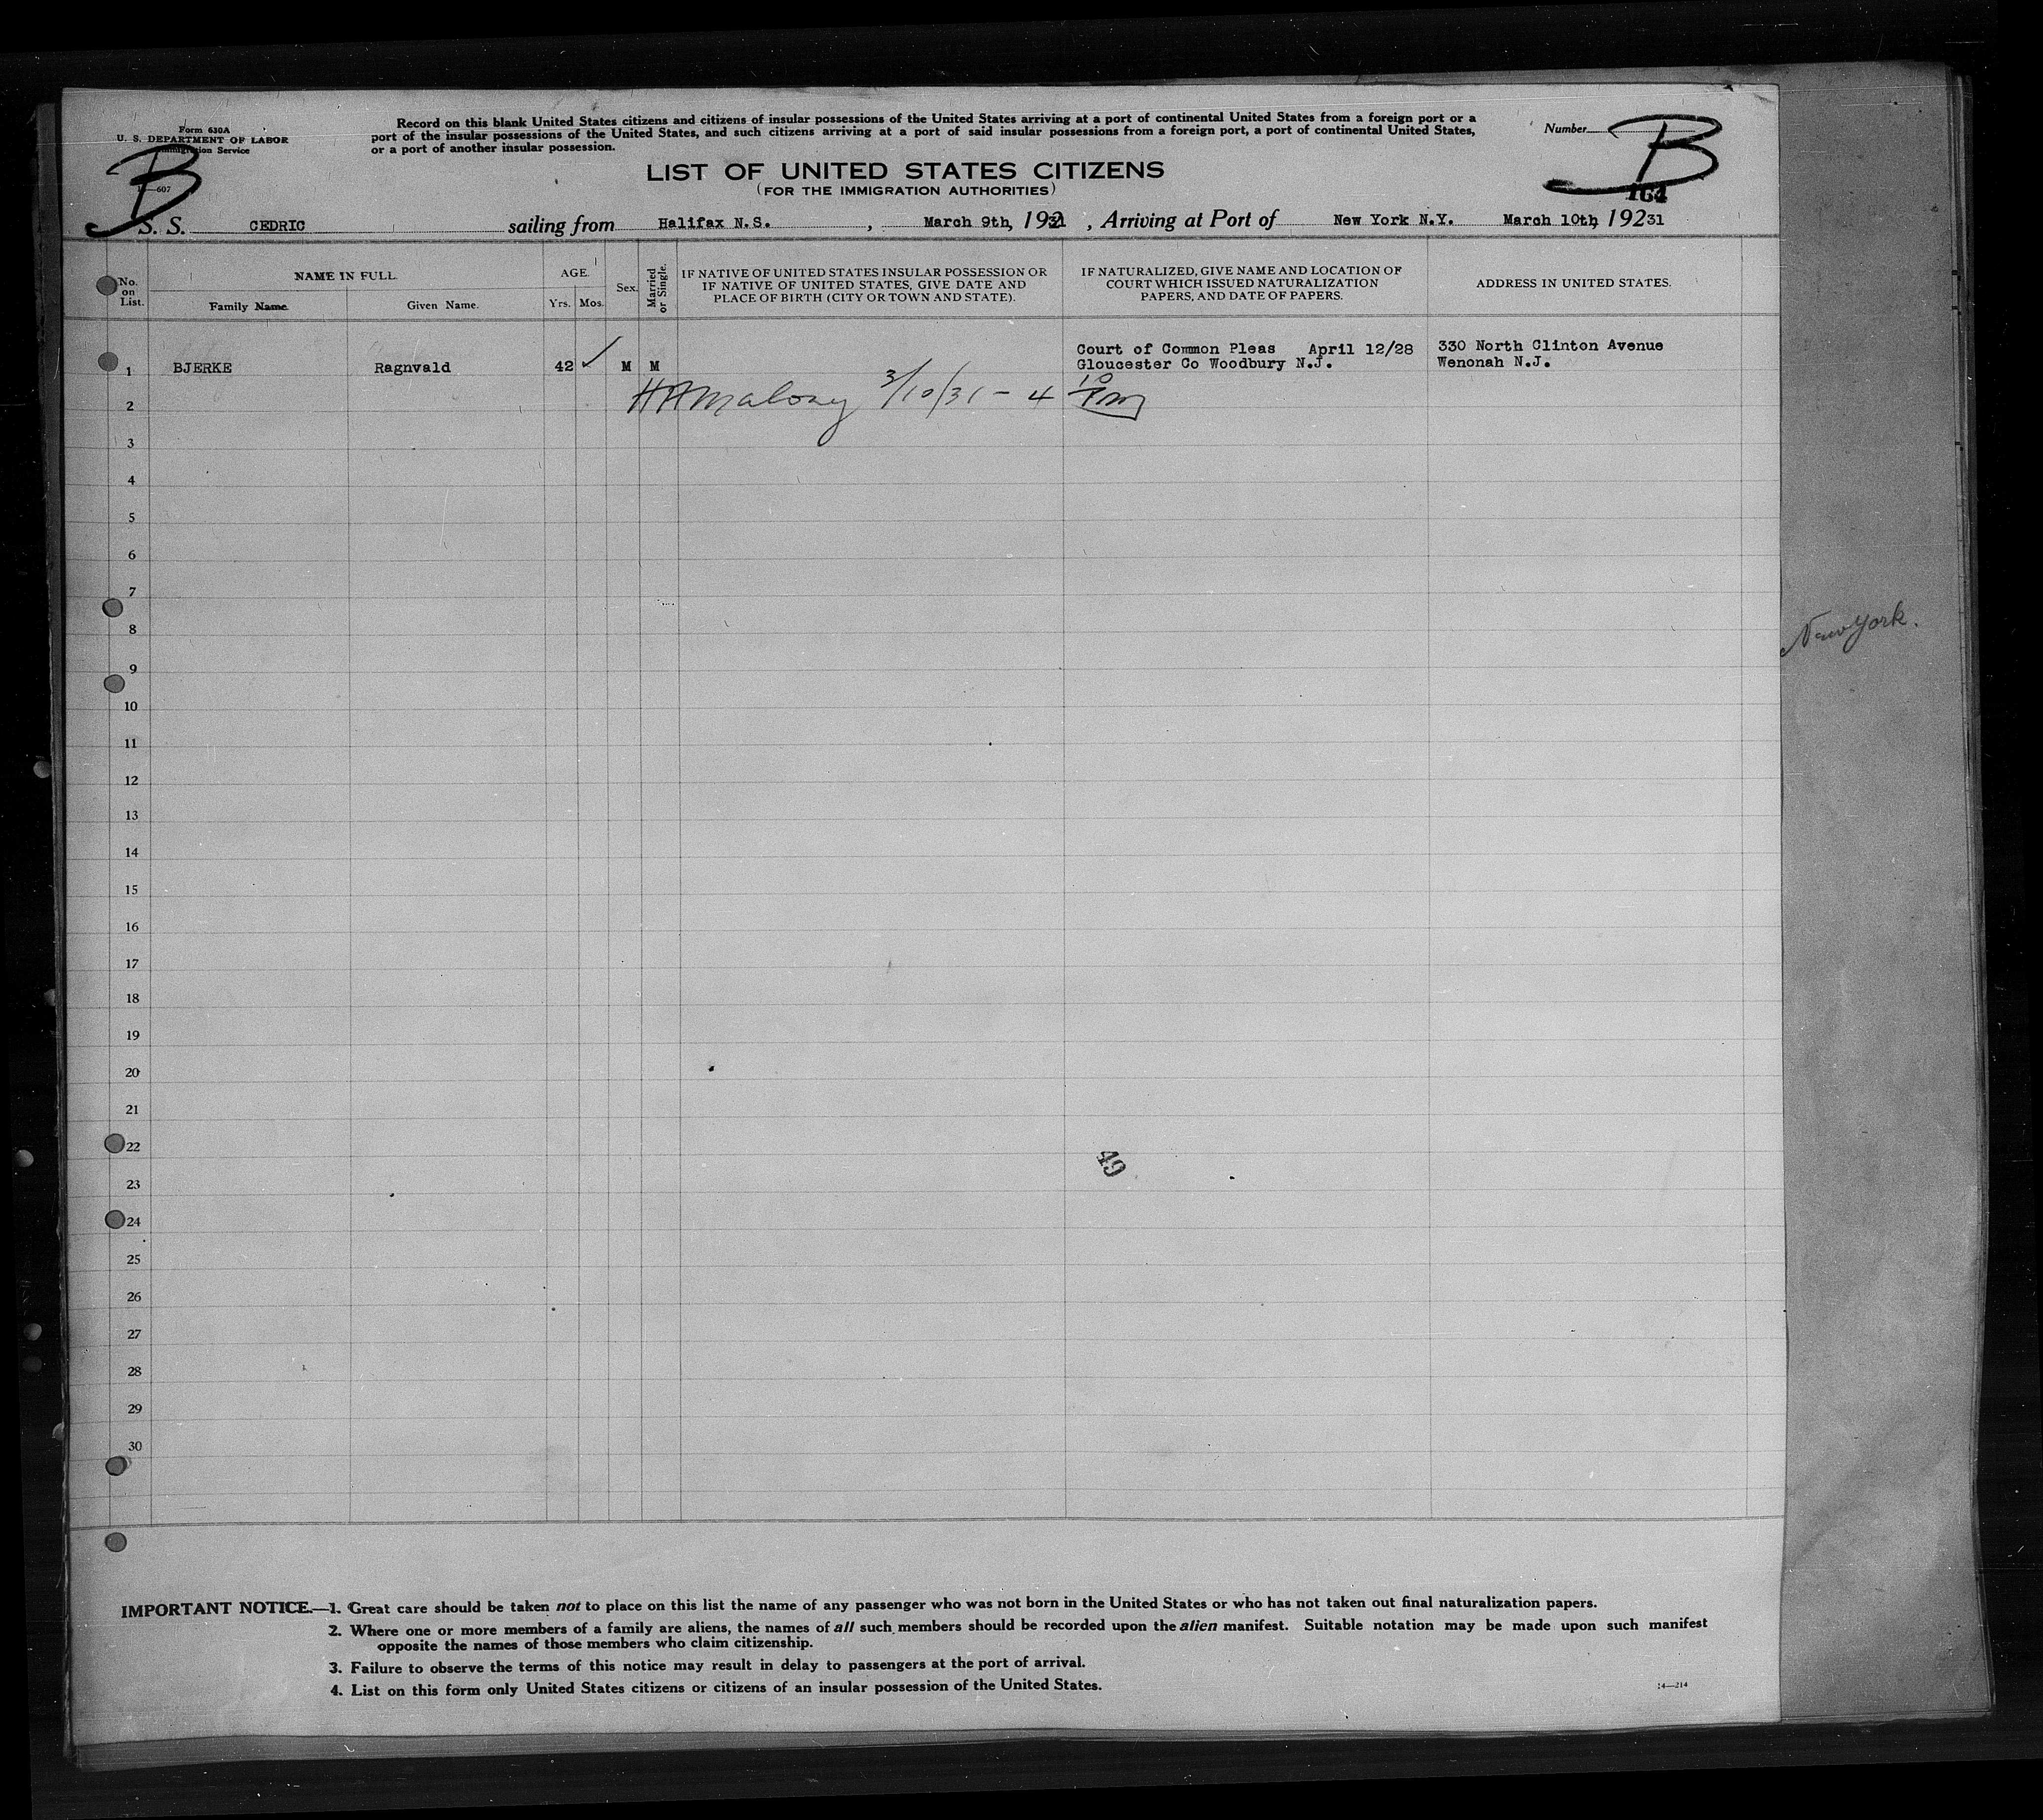 Form 630A
U. S. DEPARTMENT OF LABOR
Immigration Service
—607
Record on this blank United States citizens and citizens of insular possessions of the United States arriving at a port of continental United States from a foreign port or a
port of the insular possessions of the United States, and such citizens arriving at a port of said insular possessions from a foreign port, a port of continental United States,
or a port of another insular possession.
Number
B
B
164
LIST OF UNITED STATES CITIZENS
(FOR THE IMMIGRATION AUTHORITIES)
S. S. CEDRIC sailing from Halifax N.S. , March 9th, 19231 , Arriving at Port of New York N.Y. March 10th, 19231
No. on List.
NAME IN FULL.
Family Name.
Given Name.
AGE.
Yrs.
Mos.
Sex.
Married or Single.
IF NATIVE OF UNITED STATES INSULAR POSSESSION OR
IF NATIVE OF UNITED STATES, GIVE DATE AND
PLACE OF BIRTH (CITY OR TOWN AND STATE).
IF NATURALIZED, GIVE NAME AND LOCATION OF
COURT WHICH ISSUED NATURALIZATION
PAPERS, AND DATE OF PAPERS.
ADDRESS IN UNITED STATES.
1 BJERKE Ragnvald 42 ✓ M M
Court of Common Pleas April 12/28
Gloucester Co Woodbury N.J.
330 North Clinton Avenue
Wenonah N.J.
HHMalony 3/10/31 - 4 10 Pm
2
3
4
5
6
7
8
9
10
11
12
13
14
15
16
17
18
19
20
21
22
23
24
25
26
27
28
29
30
49
New York.
IMPORTANT NOTICE.—1. Great care should be taken not to place on this list the name of any passenger who was not born in the United States or who has not taken out final naturalization papers.
2. Where one or more members of a family are aliens, the names of all such members should be recorded upon the alien manifest. Suitable notation may be made upon such manifest
opposite the names of those members who claim citizenship.
3. Failure to observe the terms of this notice may result in delay to passengers at the port of arrival.
4. List on this form only United States citizens or citizens of an insular possession of the United States.
14—214